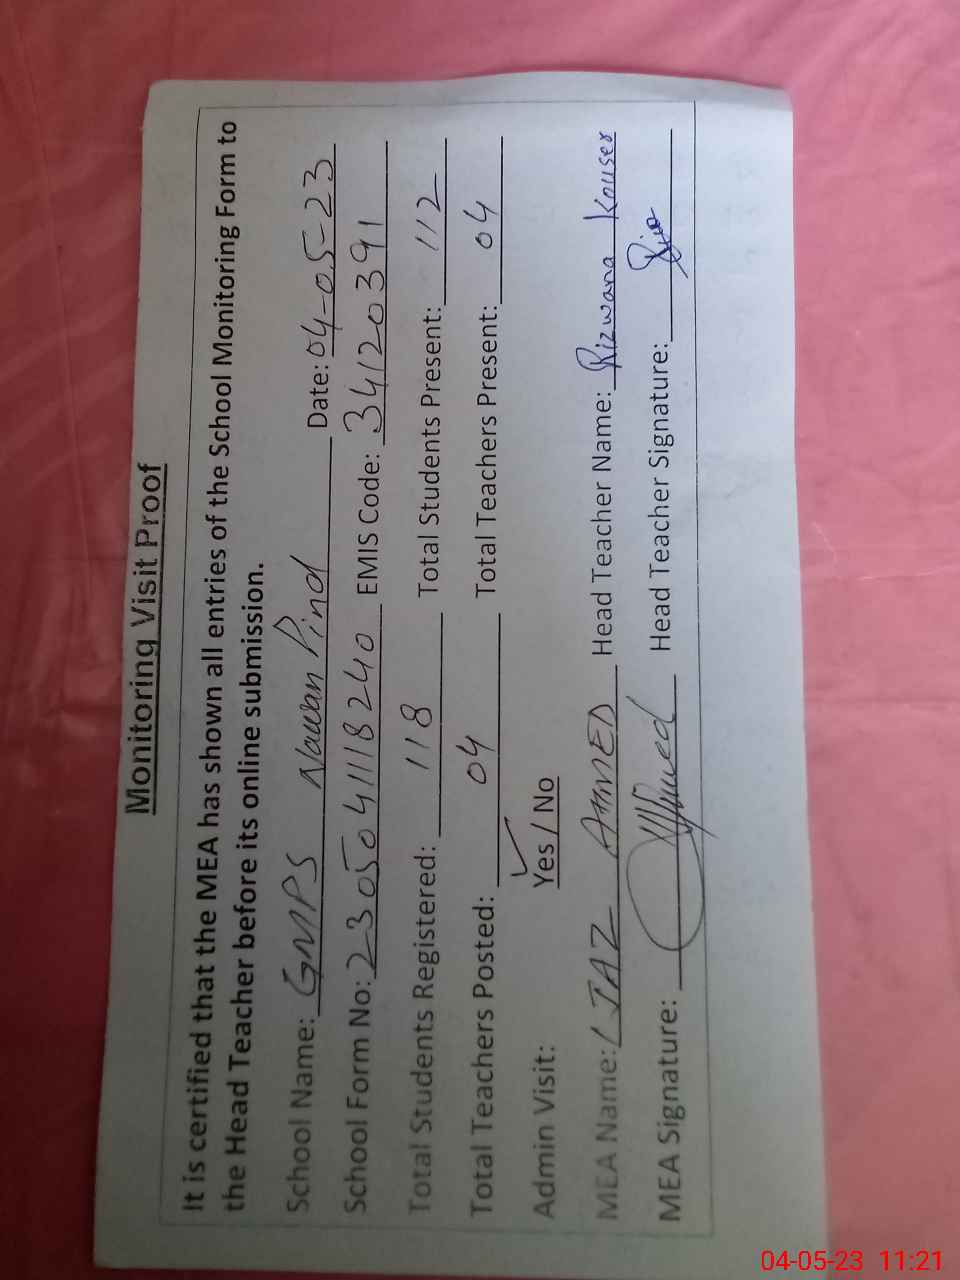 Monitoring Visit Proof
It is certified that the MEA has shown all entries of the School Monitoring Form to
the Head Teacher before its online submission.
School Name: GMPS Nawan Pind Date: 04-05-23
School Form No: 23050411118240 EMIS Code: 34120391
Total Students Registered: 118 Total Students Present: 112
Total Teachers Posted: 04 Total Teachers Present: 04
Admin Visit: Yes / No
MEA Name: IJAZ AHMED Head Teacher Name: Rizwana Kouser
MEA Signature: Head Teacher Signature:
04-05-23 11:21